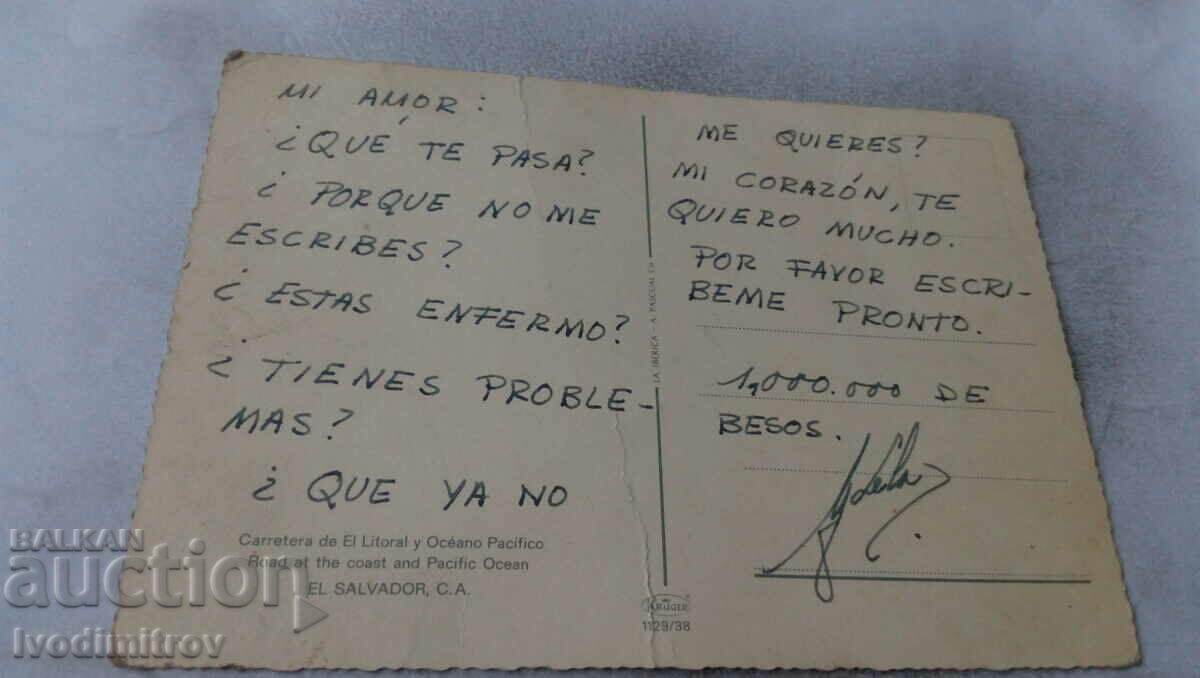 MI AMOR:
¿QUÉ TE PASA?
¿ PORQUE NO ME
ESCRIBES?
¿ ESTAS ENFERMO?
¿ TIENES PROBLE-
MAS?
¿ QUE YA NO
Carretera de El Litoral y Océano Pacífico
Road at the coast and Pacific Ocean
EL SALVADOR, C.A.
LA IBERICA - A PASCUAL
ME QUIERES?
MI CORAZÓN, TE
QUIERO MUCHO.
POR FAVOR ESCRI-
BEME PRONTO.
1,000.000 DE
BESOS.
KRÜGER
1129/38
BALKAN
auction
Ivodimitrov